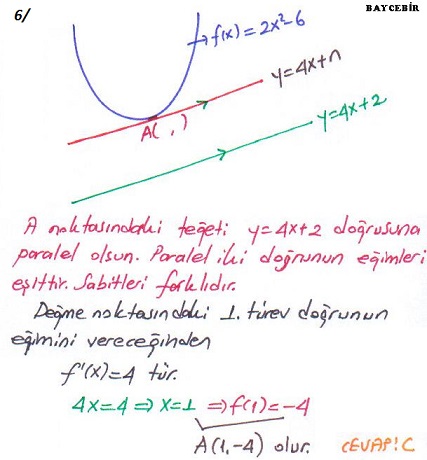 6/
BAYCEBİR
f(x)=2x²-6
y=4x+n
A( , )
y=4x+2
A noktasındaki teğeti y=4x+2 doğrusuna
paralel olsun. Paralel iki doğrunun eğimleri
eşittir. Sabitleri farklıdır.
Değme noktasındaki 1. türev doğrunun
eğimini vereceğinden
f'(x)=4 tür.
4x=4 ⇒ x=1 ⇒ f(1)=-4
A(1,-4) olur. CEVAP: C